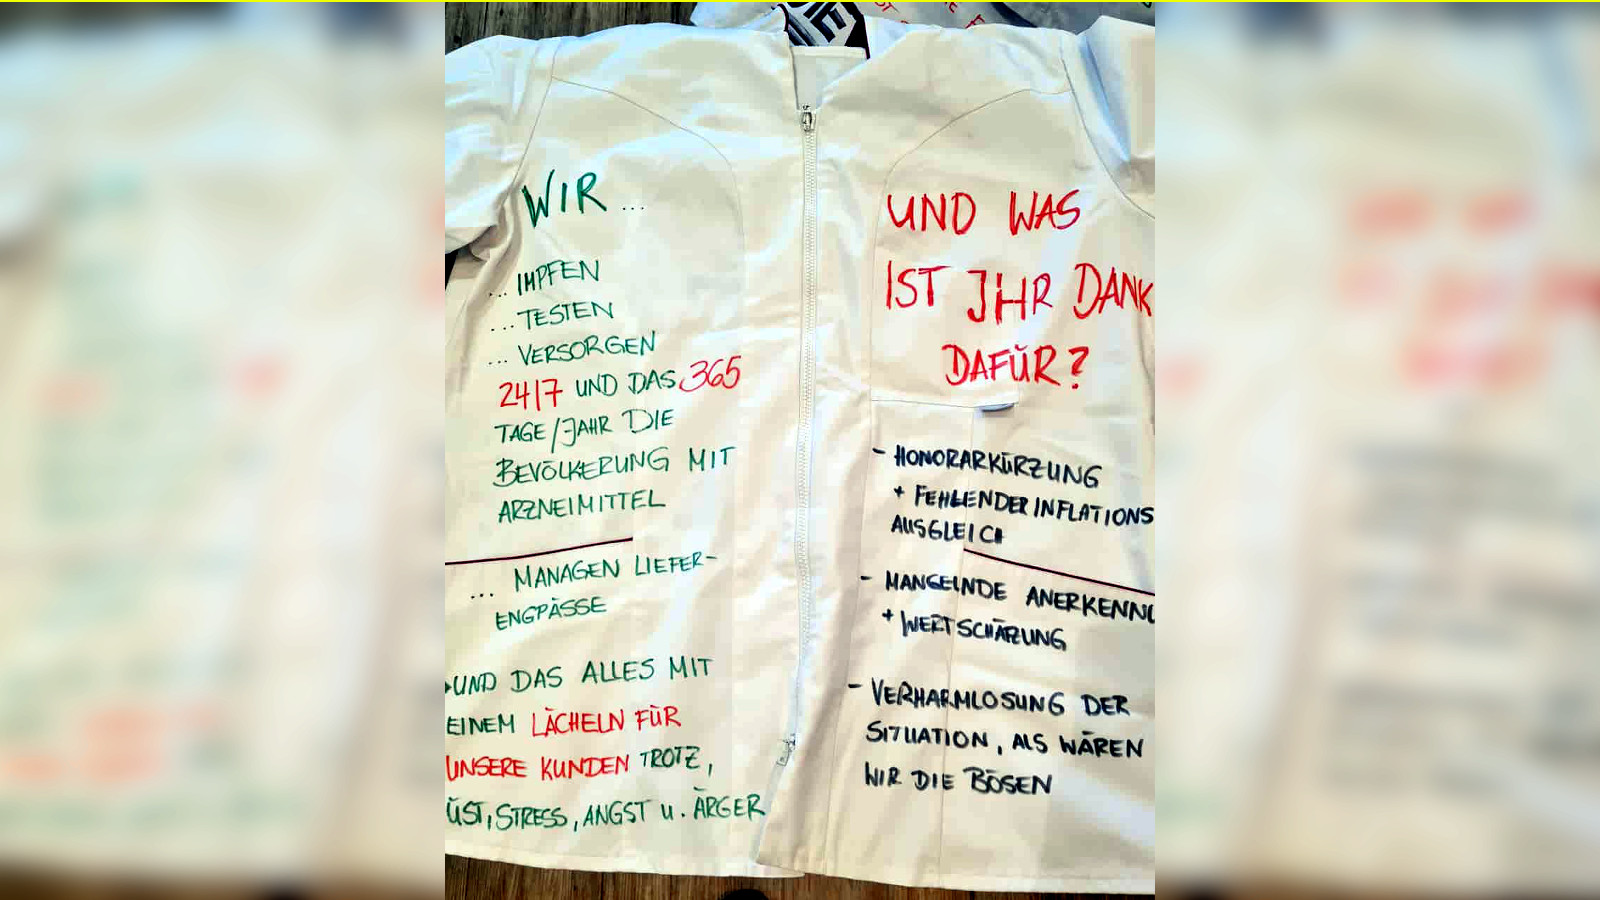 WIR ...
... IMPFEN
... TESTEN
... VERSORGEN
24/7 UND DAS 365
TAGE/JAHR DIE
BEVÖLKERUNG MIT
ARZNEIMITTEL
... MANAGEN LIEFER-
ENGPÄSSE
UND DAS ALLES MIT
EINEM LÄCHELN FÜR
UNSERE KUNDEN TROTZ,
STRESS, ANGST U. ÄRGER
UND WAS
IST IHR DANK
DAFÜR?
- HONORARKÜRZUNG
+ FEHLENDER INFLATIONS
AUSGLEICH
- MANGELNDE ANERKENNU
+ WERTSCHÄTZUNG
- VERHARMLOSUNG DER
SITUATION, ALS WÄREN
WIR DIE BÖSEN